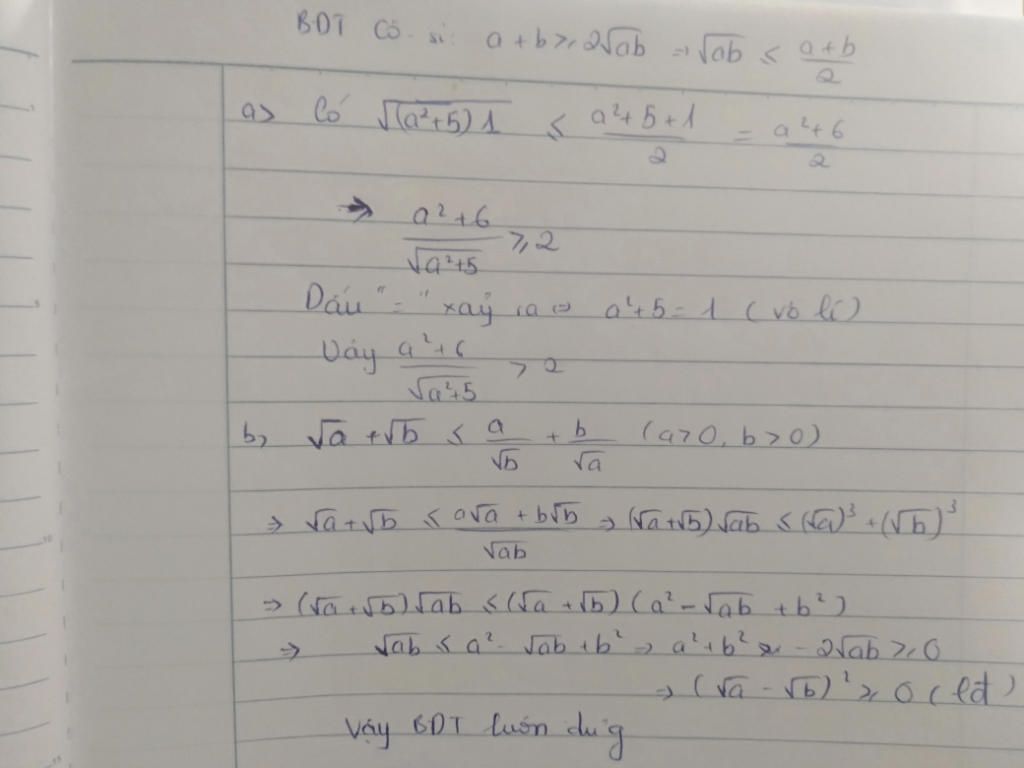 BĐT Cô-si: a + b ≥ 2√ab → √ab ≤ (a+b)/2
a> Có √((a²+5)1) ≤ (a²+5+1)/2 = (a²+6)/2
→ (a²+6)/√(a²+5) ≥ 2
Dấu "=" xảy ra ⇔ a²+5 = 1 (vô lí)
Vậy (a²+6)/√(a²+5) > 2
b, √a + √b ≤ a/√b + b/√a (a>0, b>0)
⇒ √a + √b ≤ (a√a + b√b)/√ab ⇒ (√a+√b)√ab ≤ (√a)³ + (√b)³
⇒ (√a + √b)√ab ≤ (√a + √b)(a² - √ab + b²)
⇒ √ab ≤ a² - √ab + b² → a² + b² - 2√ab ≥ 0
→ (√a - √b)² ≥ 0 (lđ)
Vậy BĐT luôn đúg